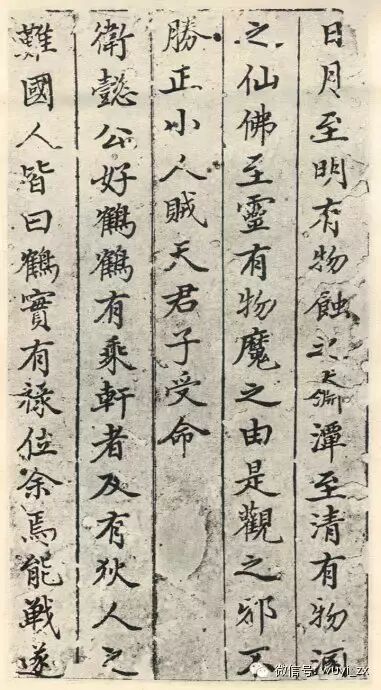 日月至明有物蝕之潭至清有物
之仙佛至靈有物魔之由是觀之邪不
勝正小人賊天君子受命
衛懿公好鶴鶴有乘軒者及有狄人之
難國人皆曰鶴實有祿位余焉能戰遂
微信号: yuyi_zx